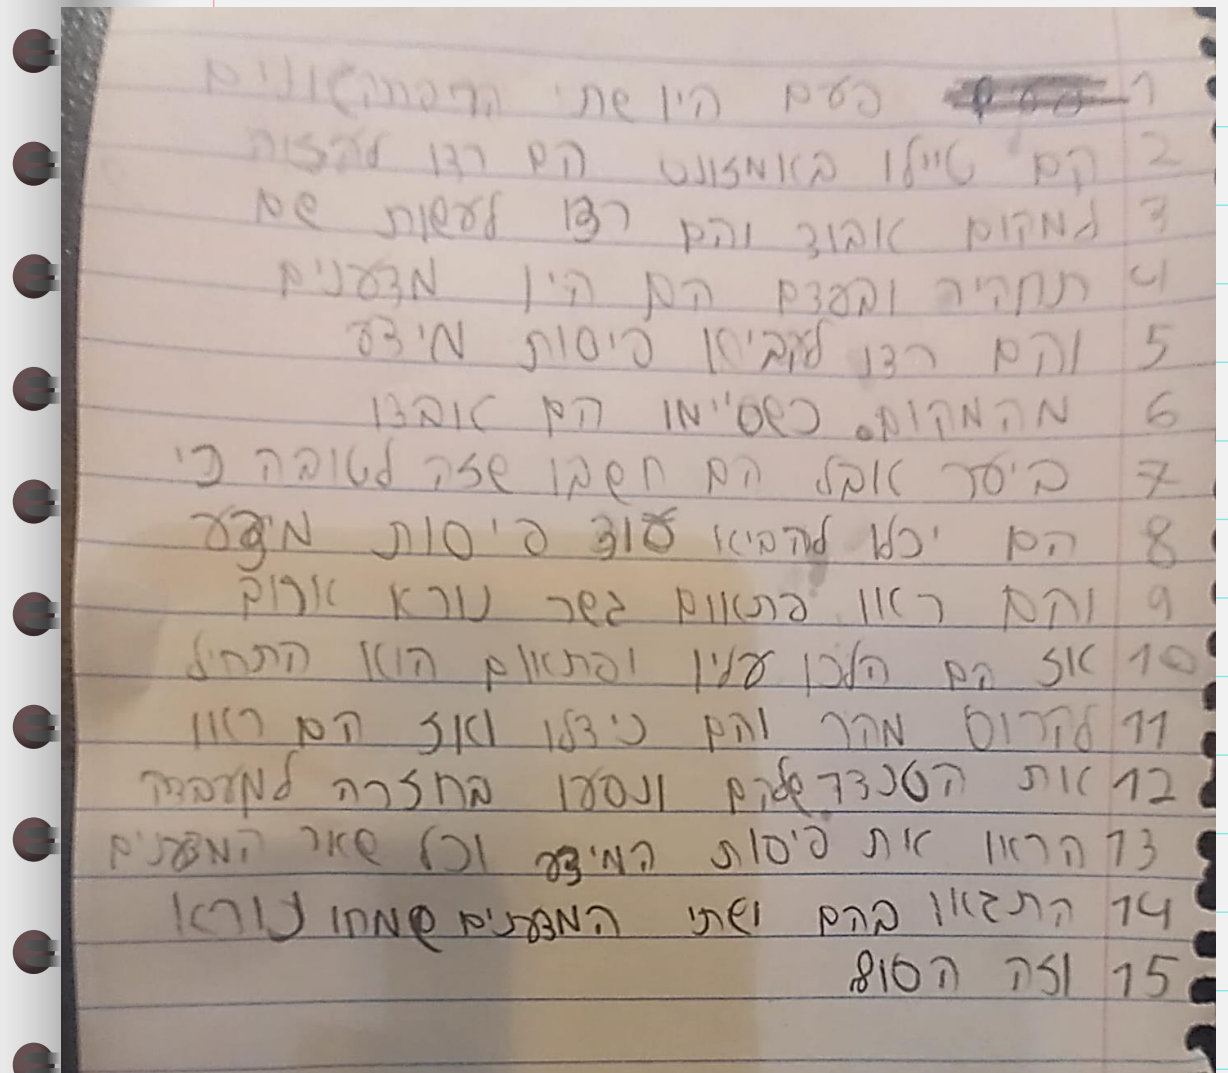 1 פעם היו שתי הרפתקאונים
2 הם טיילו באמזונס הם רצו להגיה
3 למקום אבוד והם רצו לעשות שם
4 תחקיר ובעצם הם היו מדענים
5 והם רצו להביא פיסות מידע
6 מהמקום. כשסיימו הם אבדו
7 ביער אבל הם חשבו שזה לטובה כי
8 הם יכלו להביא עוד פיסות מידע
9 והם ראו פתאום גשר נורא ארוך
10 אז הם הלכו עליו ופתאום הוא התחיל
11 לקרוס מהר והם ניצלו ואז הם ראו
12 את הטנדר שלהם ונסעו בחזרה למעבדה
13 הראו את פיסות המידע וכל שאר המדענים
14 התגאו בהם ושתי המדענים שמחו נורא
15 וזה הסוף